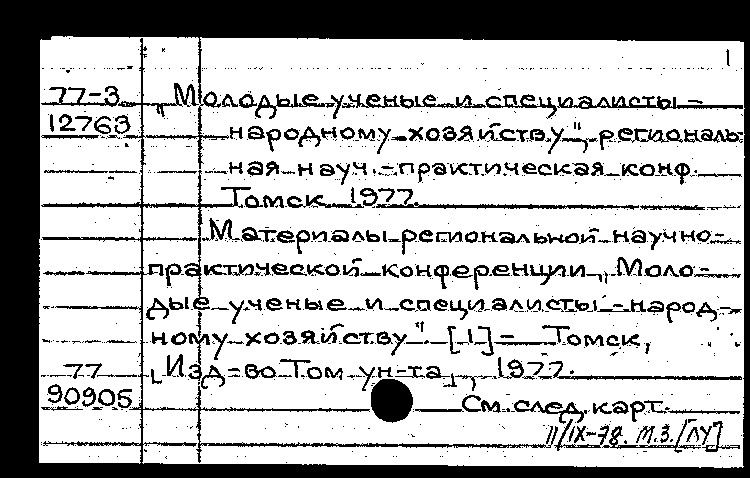 1
77-3 „Молодые ученые и специалисты -
12763 народному хозяйству", региональ-
ная науч.-практическая конф.
Томск 1977.
Материалы региональной научно-
практической конференции „Моло-
дые ученые и специалисты - народ-
ному хозяйству". [1] - Томск,
77 [Изд-во Том ун-та], 1977.
90905 См. след. карт.
11/IX-78. М.З. [ЛУ]